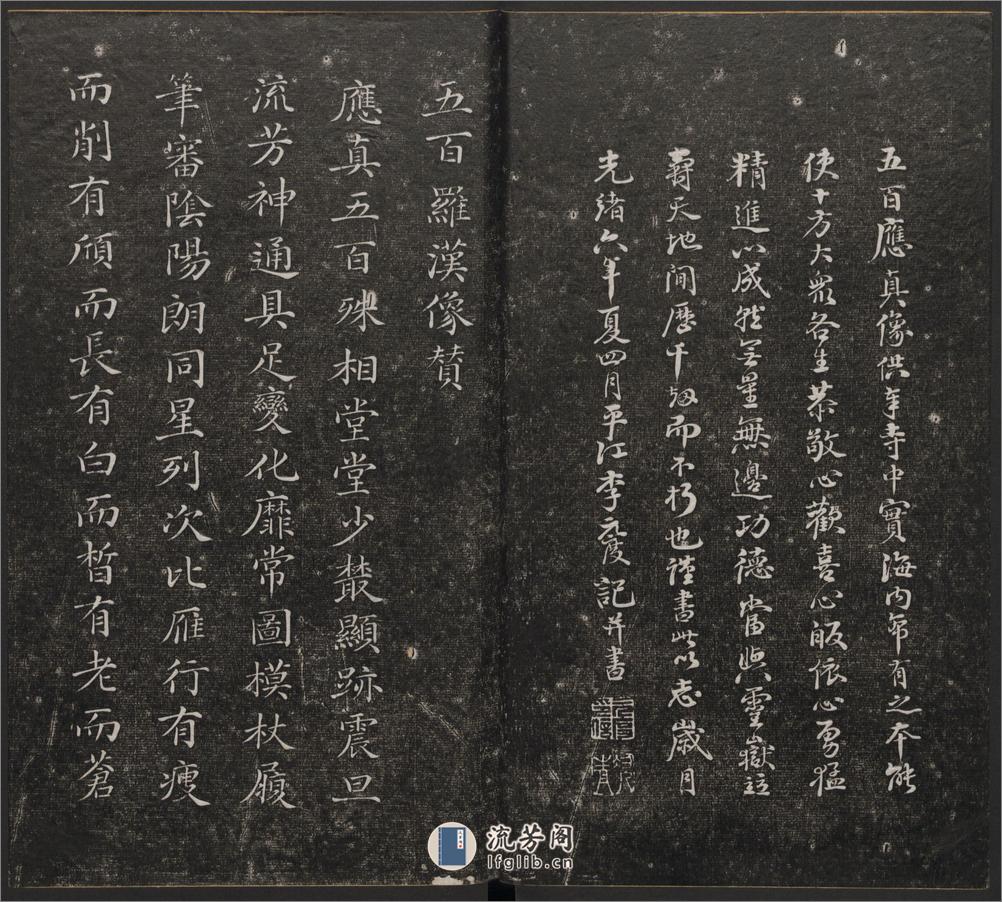 五百應真像供奉寺中實海内希有之本能
使十方大眾各生恭敬心歡喜心皈依心勇猛
精進以成就無量無邊功德當與靈嶽竝
壽天地間歷千劫而不朽也謹書此以志歲月
光緒六年夏四月平江李元度記并書
五百羅漢像贊
應真五百殊相堂堂少叢顯跡震旦
流芳神通具足變化靡常圖模杖履
筆審陰陽朗同星列次比雁行有瘦
而削有頎而長有白而皙有老而蒼
流芳阁
lfglib.cn